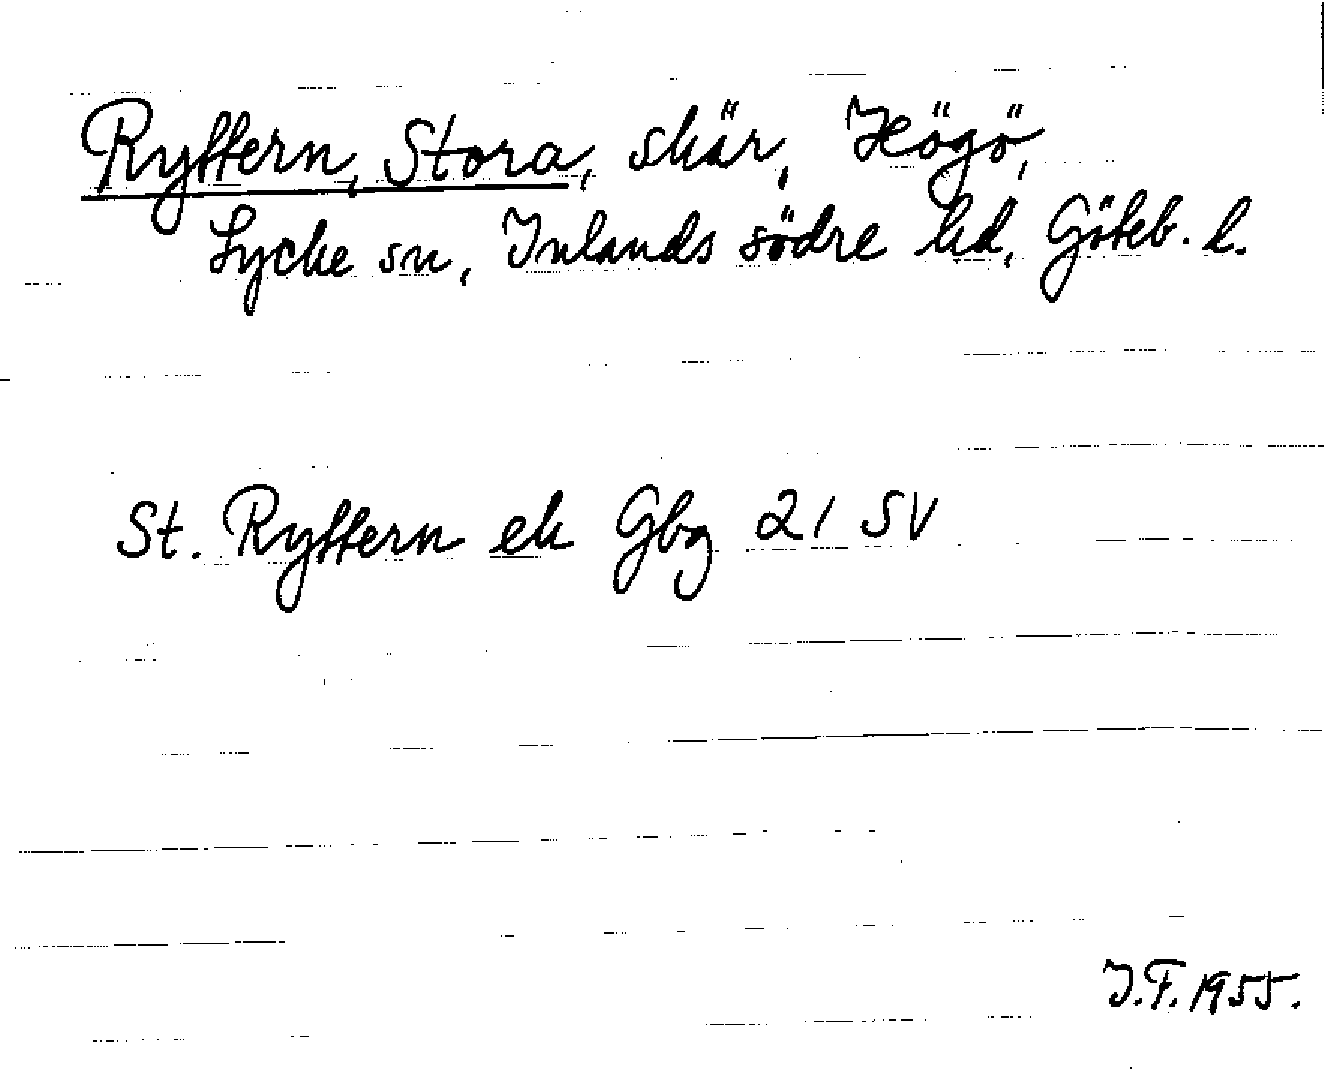 Ryffern, Stora, skär, Högö,
Lycke sn, Inlands södre hd, Göteb. l.
St. Ryffern ek Gbg 21 SV
I.F. 1955.